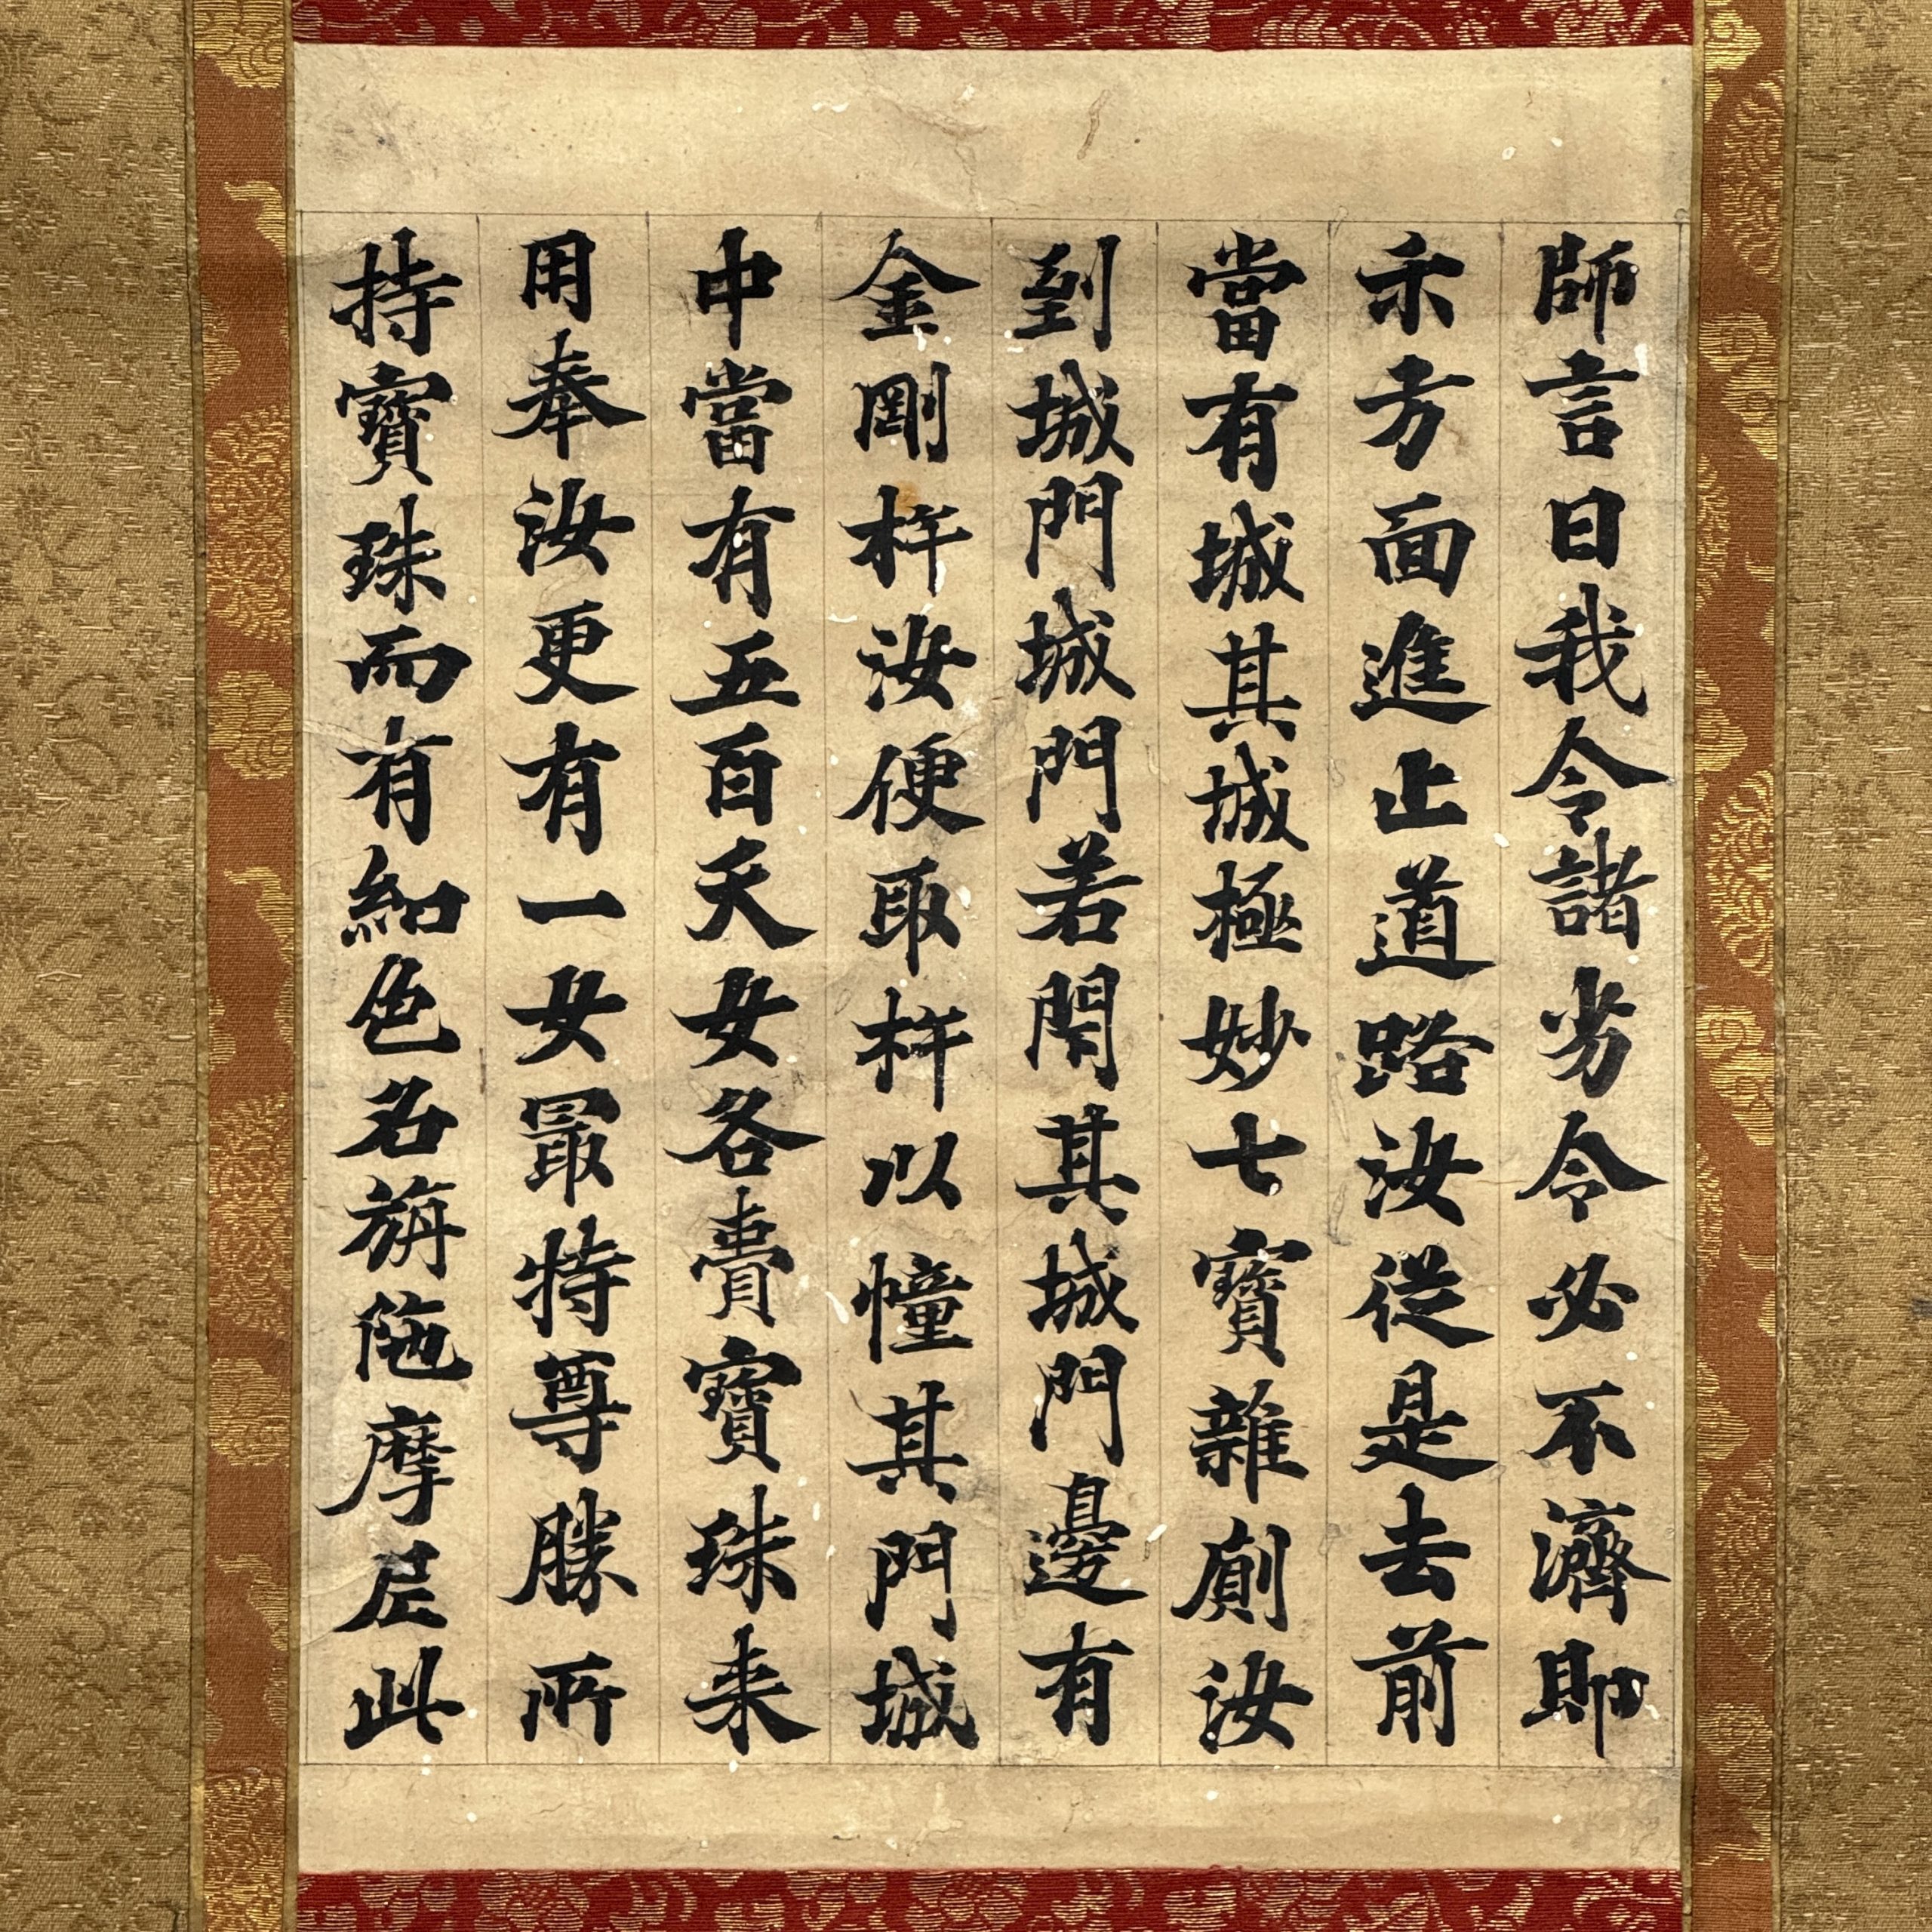 師言曰我令諸劣令必不濟即
示方面進止道路汝從是去前
當有城其城極妙七寶雜廁汝
到城門城門若閇其城門邊有
金剛杵汝便取杵以憧其門城
中當有五百天女各賷寶珠来
用奉汝更有一女冣特尊勝所
持寶珠而有紺色名旃陁摩尼此